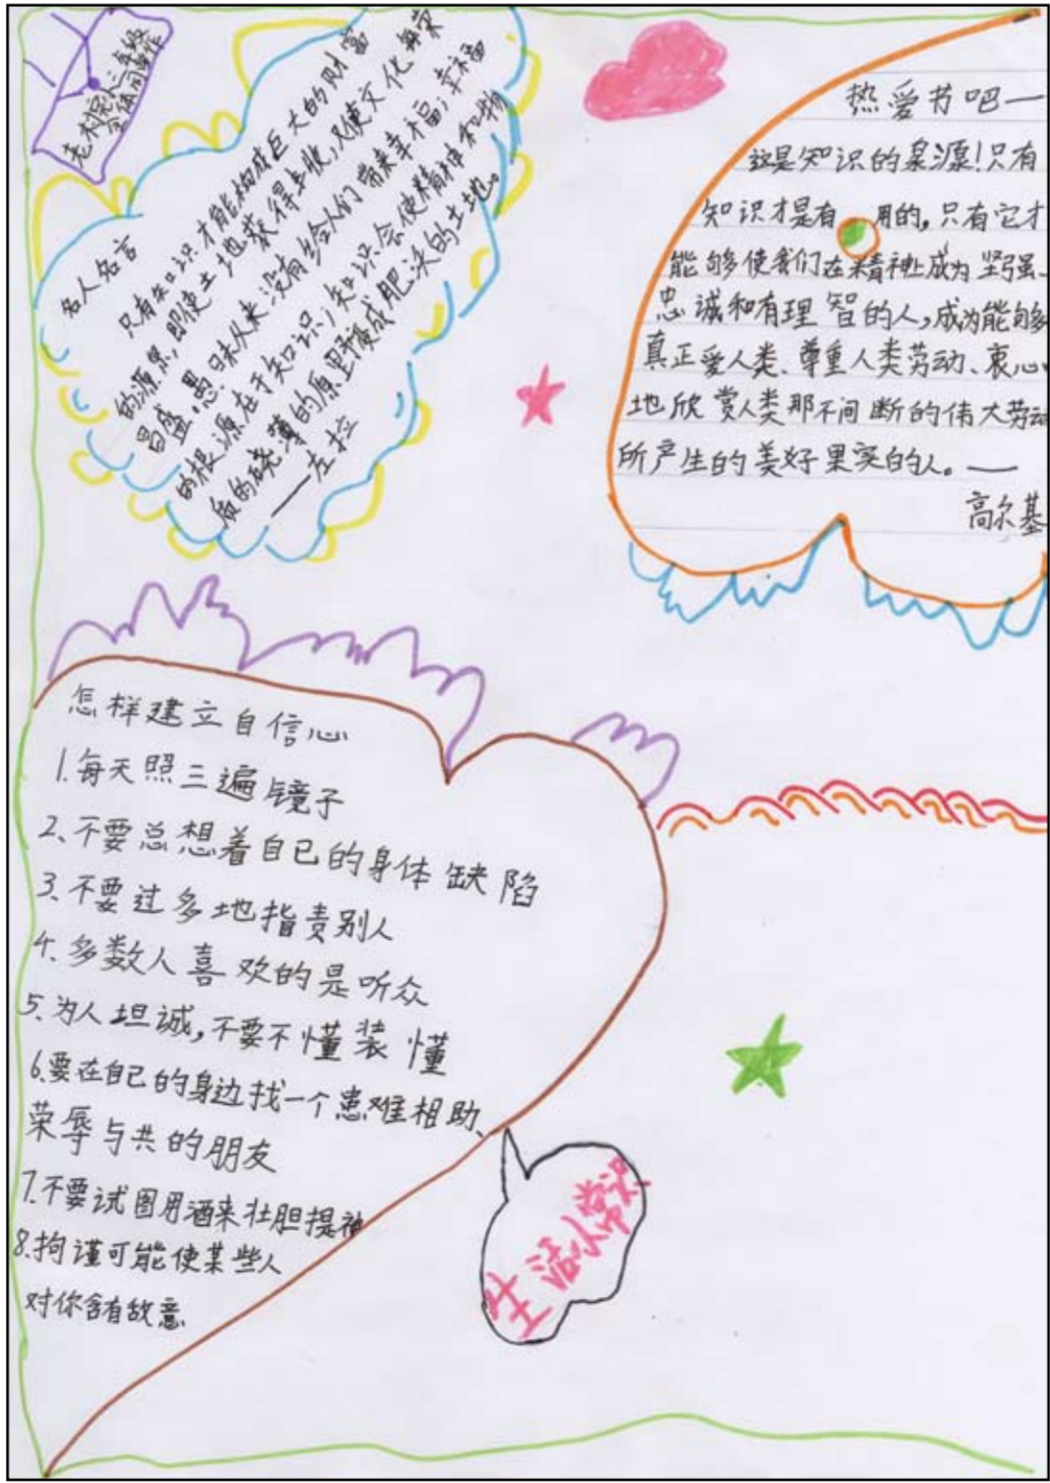 三年级
全体同学作
名人名言
只有知识才能构成巨大的财富
的源泉,即使土地获得丰收,又使文化繁荣
昌盛。愚昧从来没有给人们带来幸福;幸福
的根源在于知识;知识会使精神和物
质的硗薄的原野变成肥沃的土地。
——左拉
热爱书吧——
这是知识的泉源!只有
知识才是有用的,只有它才
能够使我们在精神上成为坚强、
忠诚和有理智的人,成为能够
真正爱人类、尊重人类劳动、衷心
地欣赏人类那不间断的伟大劳动
所产生的美好果实的人。——
高尔基
怎样建立自信心
1.每天照三遍镜子
2、不要总想着自己的身体缺陷
3、不要过多地指责别人
4.多数人喜欢的是听众
5、为人坦诚,不要不懂装懂
6.要在自己的身边找一个患难相助、
荣辱与共的朋友
7.不要试图用酒来壮胆提神
8.拘谨可能使某些人
对你含有故意
生活小常识